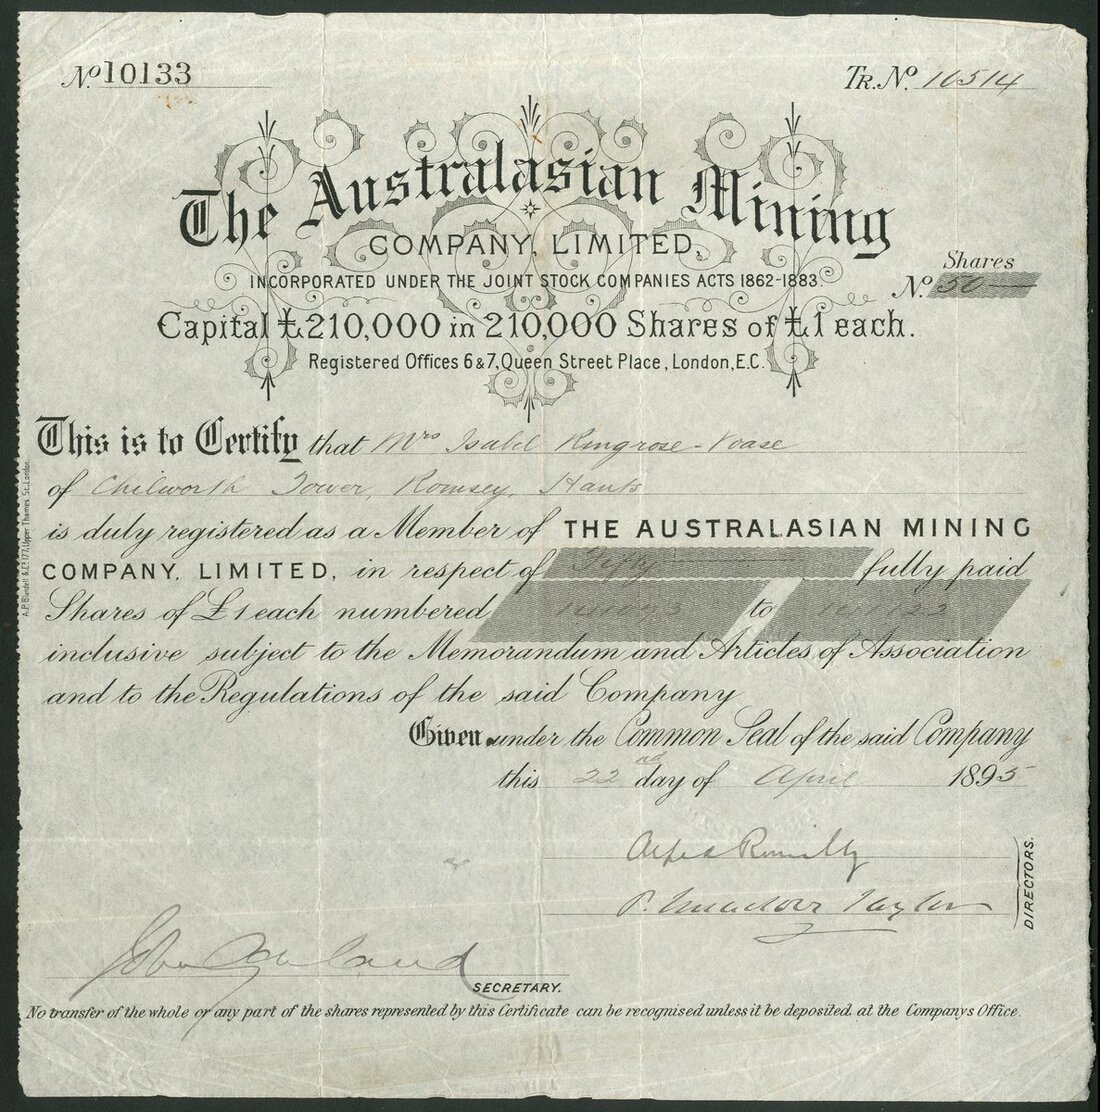 No. 10133
TR. No. 10514
The Australasian Mining
COMPANY, LIMITED,
INCORPORATED UNDER THE JOINT STOCK COMPANIES ACTS 1862-1883.
Shares
No. 50
Capital £210,000 in 210,000 Shares of £1 each.
Registered Offices 6 & 7, Queen Street Place, London, E.C.
This is to Certify that Mrs Isabel Ringrose-Voase
of Chilworth Tower, Romsey, Hants
is duly registered as a Member of THE AUSTRALASIAN MINING
COMPANY, LIMITED, in respect of Fifty fully paid
Shares of £1 each numbered to
inclusive subject to the Memorandum and Articles of Association
and to the Regulations of the said Company
Given under the Common Seal of the said Company
this 22nd day of April 1895
Alfred Romilly
Taylor
DIRECTORS.
John
SECRETARY.
No transfer of the whole or any part of the shares represented by this Certificate can be recognised unless it be deposited at the Companys Office.
A.P. Blundell & Co. 177, Upper Thames St. London.